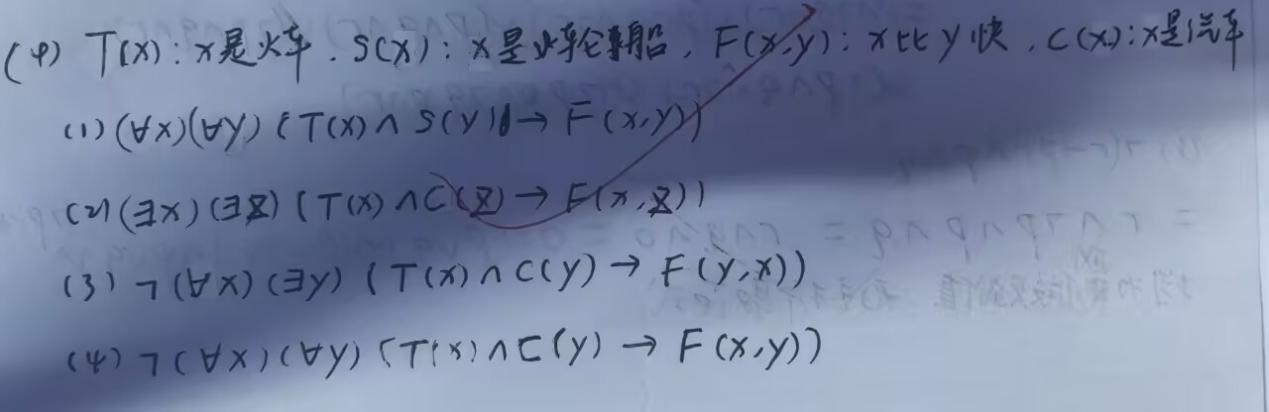 (4) T(x): x是火车. S(x): x是轮船, F(x,y): x比y快, C(x): x是汽车
(1) (∀x)(∀y) (T(x) ∧ S(y) → F(x,y))
(2) (∃x) (∃z) (T(x) ∧ C(z) → F(x,z))
(3) ¬(∀x) (∃y) (T(x) ∧ C(y) → F(y,x))
(4) ¬(∀x) (∀y) (T(x) ∧ C(y) → F(x,y))